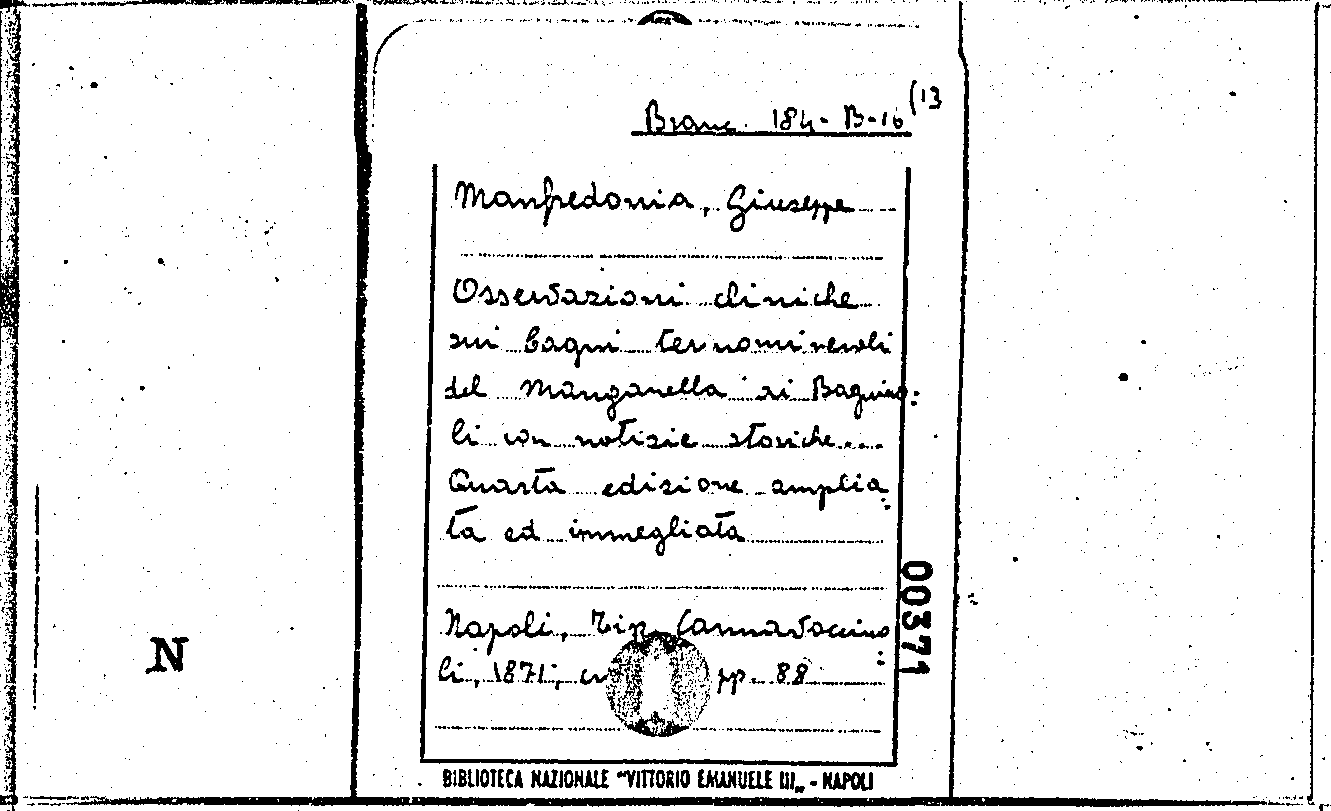 Branc. 184-B-16 (13
Manfredonia, Giuseppe
Osservazioni cliniche
sui bagni termominerali
del Manganella di Bagnuo=
li con notizie storiche....
Quarta edizione amplia=
ta ed immegliata
Napoli, Tip. Cannavacciuo=
li, 1871, pp. 88
00371
N
BIBLIOTECA NAZIONALE "VITTORIO EMANUELE III„ - NAPOLI